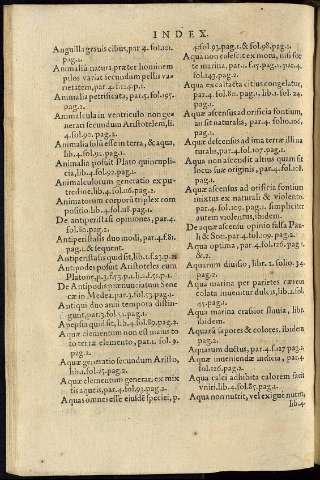 INDEX.
Anguilla gesuis cibus, par.4. fol.121.
pag.1.
Animalia natura præter hominem
pilos variat secundum pellis va-
rietatem, par.4. f.124. p.1.
Animalia petrificata, par.4. fol.195.
pag.2.
Animalcula in ventriculo non ge-
nerari secundum Aristotelem, li.
4. fol.92. pag.2.
Animalia solū esse in terra, & aqua,
lib.4. fol.92. pag.2.
Animalia posuit Plato quincupli-
cia, lib.4. fol.92. pag.2.
Animalculorum generatio ex pu-
tredine, lib.4. fol.26. pag.2.
Animatorum corporū triplex com
positio. lib.4. fol.28. pag.1.
De antiperistasi opiniones, par.4.
fol.80. pag.2.
Antiperistasis duo modi, par.4. f.81.
pag.1. & sequent.
Antiperistasis quid sit, lib.1. f.23. p.2.
Antipodes posuit Aristoteles cum
Platone, p.3. f.53. p.1. & f.52. p.1.
De Antipodis præ nunciatum Sene
cæ in Medea, par.3. fol.53. pag.1.
Antiqui duo anni tempora distin-
gunt, par.3. fol.51. pag.2.
Apepsia quid sit, lib.4. fol.89. pag.2.
Aquæ elementum non est maius to
to terræ elemento, par.1. fol.9.
pag.2.
Aquæ generatio secundum Aristo.
lib.1. fol.25. pag.2.
Aquæ elementum generat, ex mix
tis aqueis, par.4. fol.93. pag.2.
Aquas omnes esse eiusdē speciei, p.
4. fol.93. pag.1. & fol.98. pag.1.
Aqua non calescit ex motu, nisi for
te marina, par.1. f.15. pag.1. par.4.
fol.143. pag.2.
Aqua excita acta citius congelatur,
par.4. fol.81. pag.1. lib.1. fol.24.
pag.2.
Aquæ ascensus ad orificia fontium,
an sit naturalis, par.4. folio.106.
pag.1.
Aquæ descensus ad ima terræ illi na
turalis, par.4. fol.107. pag.1.
Aqua non ascendit altius quam sit
locus suæ originis, par.4. fol.108.
pag.1.
Aquæ ascensus ad orificia fontium
mixtus ex naturali & violento.
par.4. fol.109. pag.1. simpliciter
autem violentus, ibidem.
De aquæ ascensu opinio falsa Pau-
li & Soc. par.4. fol.109. pag.2.
Aqua optima, par.4. fol.126. pag.1.
& 2.
Aquarum diuisio, libr.2. folio.34.
pag.2.
Aqua marina per parietes cæreos
colata inuenitur dulcis, lib.2. fol.
45. pag.1.
Aqua marina crassior fluuia, libi
ibidem.
Aquarū sapores & colores, ibidem
pag.2.
Aquarum ductus, par.4. f.127. pag.2.
Aquæ inueniendæ indicia, par.4.
fol.126. pag.2.
Aqua calci adhibita calorem facit
vniri. lib.4. fol.85. pag.2.
Aqua non nutrit, vel exigue nutrit,
lib.4.